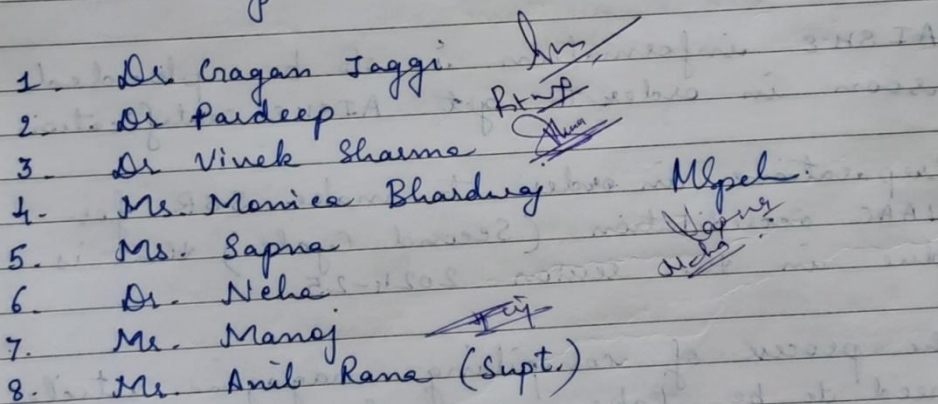 1. Dr. Gagan Jaggi
2. Dr Pardeep
3. Dr Vivek Sharma
4. Ms. Monica Bhardwaj
5. Ms. Sapna Sapna
6. Dr. Neha Neha
7. Mr. Manoj
8. Mr. Anil Rana (Supt.)